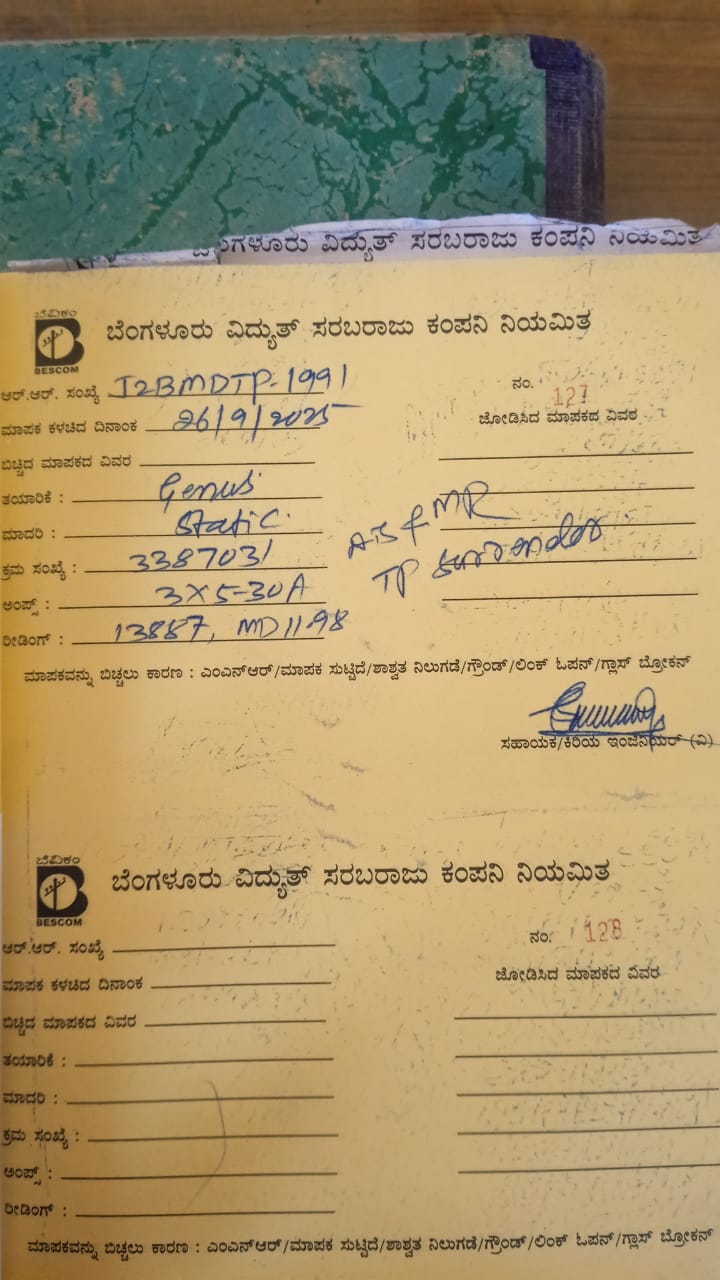 ಬೆಂಗಳೂರು ವಿದ್ಯುತ್ ಸರಬರಾಜು ಕಂಪನಿ ನಿಯಮಿತ
ಬೆವಿಕಂ
BESCOM
ಬೆಂಗಳೂರು ವಿದ್ಯುತ್ ಸರಬರಾಜು ಕಂಪನಿ ನಿಯಮಿತ
ಆರ್.ಆರ್. ಸಂಖ್ಯೆ J2BMDTP-1991
ನಂ. 127
ಮಾಪಕ ಕಳಚಿದ ದಿನಾಂಕ 26/9/2025
ಜೋಡಿಸಿದ ಮಾಪಕದ ವಿವರ
ಬಿಚ್ಚಿದ ಮಾಪಕದ ವಿವರ
ತಯಾರಿಕೆ : Genus
ಮಾದರಿ : Static
ಕ್ರಮ ಸಂಖ್ಯೆ : 3387031
MR
ಅಂಪ್ಸ್ : 3X5-30A
TP surrender
ರೀಡಿಂಗ್ : 13887, MD 11.98
ಮಾಪಕವನ್ನು ಬಿಚ್ಚಲು ಕಾರಣ : ಎಂಎನ್ಆರ್/ಮಾಪಕ ಸುಟ್ಟಿದೆ/ಶಾಶ್ವತ ನಿಲುಗಡೆ/ಗ್ರೌಂಡ್/ಲಿಂಕ್ ಓಪನ್/ಗ್ಲಾಸ್ ಬ್ರೋಕನ್
ಸಹಾಯಕ/ಕಿರಿಯ ಇಂಜಿನಿಯರ್ (ವಿ)
ಬೆವಿಕಂ
BESCOM
ಬೆಂಗಳೂರು ವಿದ್ಯುತ್ ಸರಬರಾಜು ಕಂಪನಿ ನಿಯಮಿತ
ಆರ್.ಆರ್. ಸಂಖ್ಯೆ
ನಂ. 128
ಮಾಪಕ ಕಳಚಿದ ದಿನಾಂಕ
ಜೋಡಿಸಿದ ಮಾಪಕದ ವಿವರ
ಬಿಚ್ಚಿದ ಮಾಪಕದ ವಿವರ
ತಯಾರಿಕೆ :
ಮಾದರಿ :
ಕ್ರಮ ಸಂಖ್ಯೆ :
ಅಂಪ್ಸ್ :
ರೀಡಿಂಗ್ :
ಮಾಪಕವನ್ನು ಬಿಚ್ಚಲು ಕಾರಣ : ಎಂಎನ್ಆರ್/ಮಾಪಕ ಸುಟ್ಟಿದೆ/ಶಾಶ್ವತ ನಿಲುಗಡೆ/ಗ್ರೌಂಡ್/ಲಿಂಕ್ ಓಪನ್/ಗ್ಲಾಸ್ ಬ್ರೋಕನ್